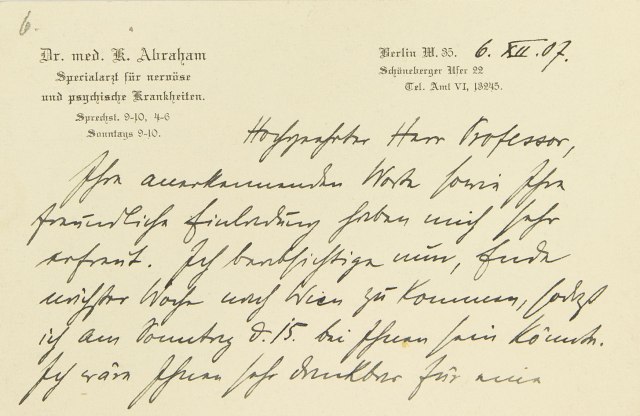 6.
Dr. med. K. Abraham
Specialarzt für nervöse
und psychische Krankheiten.
Sprechst. 9-10, 4-6
Sonntags 9-10.
Berlin W. 35. 6. XII. 07.
Schöneberger Ufer 22
Tel. Amt VI, 13245.
Hochgeehrter Herr Professor,
Ihre anerkennenden Worte sowie Ihre
freundliche Einladung haben mich sehr
erfreut. Ich beabsichtige nun, Ende
nächster Woche nach Wien zu kommen, sodass
ich am Sonntag d. 15. bei Ihnen sein könnte.
Ich wäre Ihnen sehr dankbar für eine